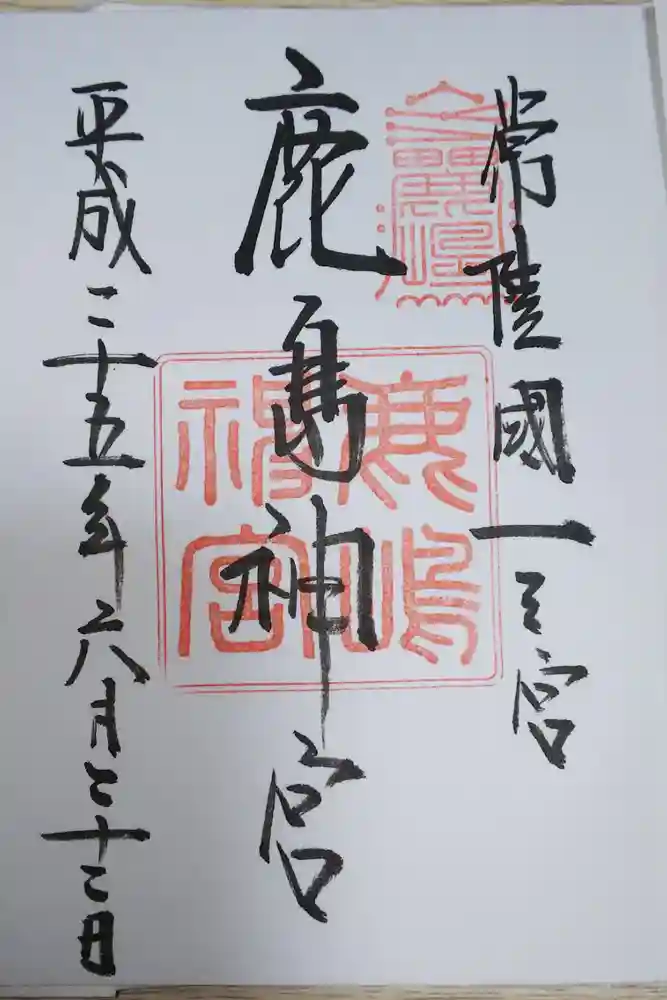 常陸國一之宮
鹿島神宮
平成二十五年六月二十二日
鹿嶋神宮